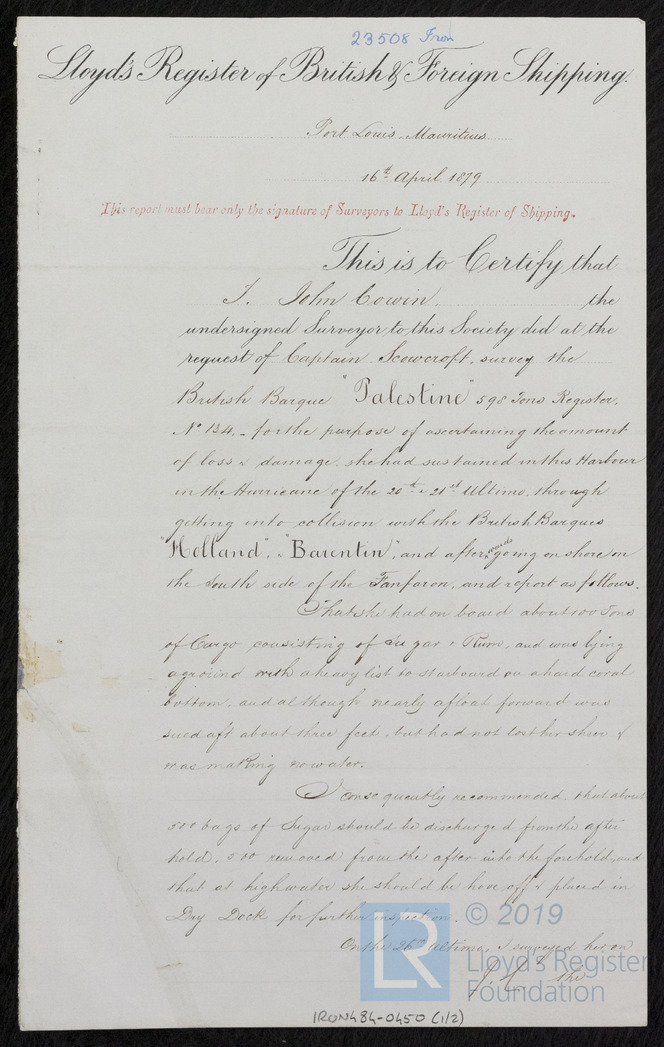 23508 Iron
Lloyd's Register of British & Foreign Shipping.
Port Louis, Mauritius
16th April 1879
This report must bear only the signature of Surveyors to Lloyd's Register of Shipping.
This is to Certify that
I. John Cowin. the
undersigned Surveyor to this Society did at the
request of Captain Scowcroft, survey the
British Barque "Palestine" 598 Tons Register,
No 134, - for the purpose of ascertaining the amount
of loss & damage, she had sustained in this Harbour
in the Hurricane of the 20th & 21st Ultimo, through
getting into collision with the British Barques
"Holland", & "Barentin", and afterwards going on shore on
the South side of the Fanfaron, and report as follows.
That she had on board about 100 Tons
of Cargo consisting of Sugar & Rum, and was lying
aground with a heavy list to starboard on a hard coral
bottom, and although nearly afloat forward was
sued aft about three feet, but had not lost her sheer &
was making no water.
I consequently recommended, that about
500 bags of Sugar should be discharged from the after
hold, 500 removed from the after into the forehold, and
that at highwater she should be hove off & placed in
Dry Dock for further inspection.
On the 26th Ultimo, I surveyed her on
J.C. the
LR
© 2019
Lloyd's Register
Foundation
IRON484-0450 (1/2)